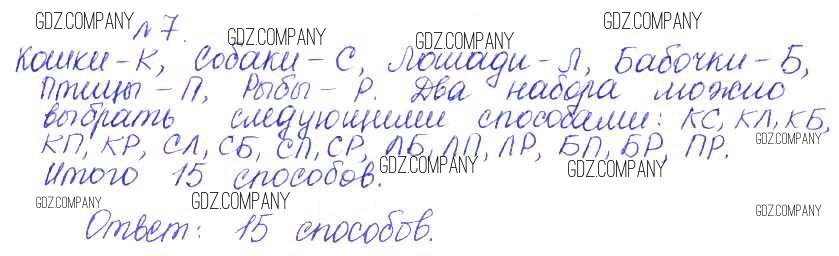 GDZ.COMPANY № 7. GDZ.COMPANY GDZ.COMPANY GDZ.COMPANY
Кошки - К, Собаки - С, Лошади - Л, Бабочки - Б,
GDZ.COMPANY
Птицы - П, Рыбы - Р. Два набора можно
выбрать следующими способами: КС, КЛ, КБ,
КП, КР, СЛ, СБ, СП, СР, ЛБ, ЛП, ЛР, БП, БР, ПР. GDZ.COMPANY
Итого 15 способов. GDZ.COMPANY GDZ.COMPANY
GDZ.COMPANY GDZ.COMPANY GDZ.COMPANY
Ответ: 15 способов.